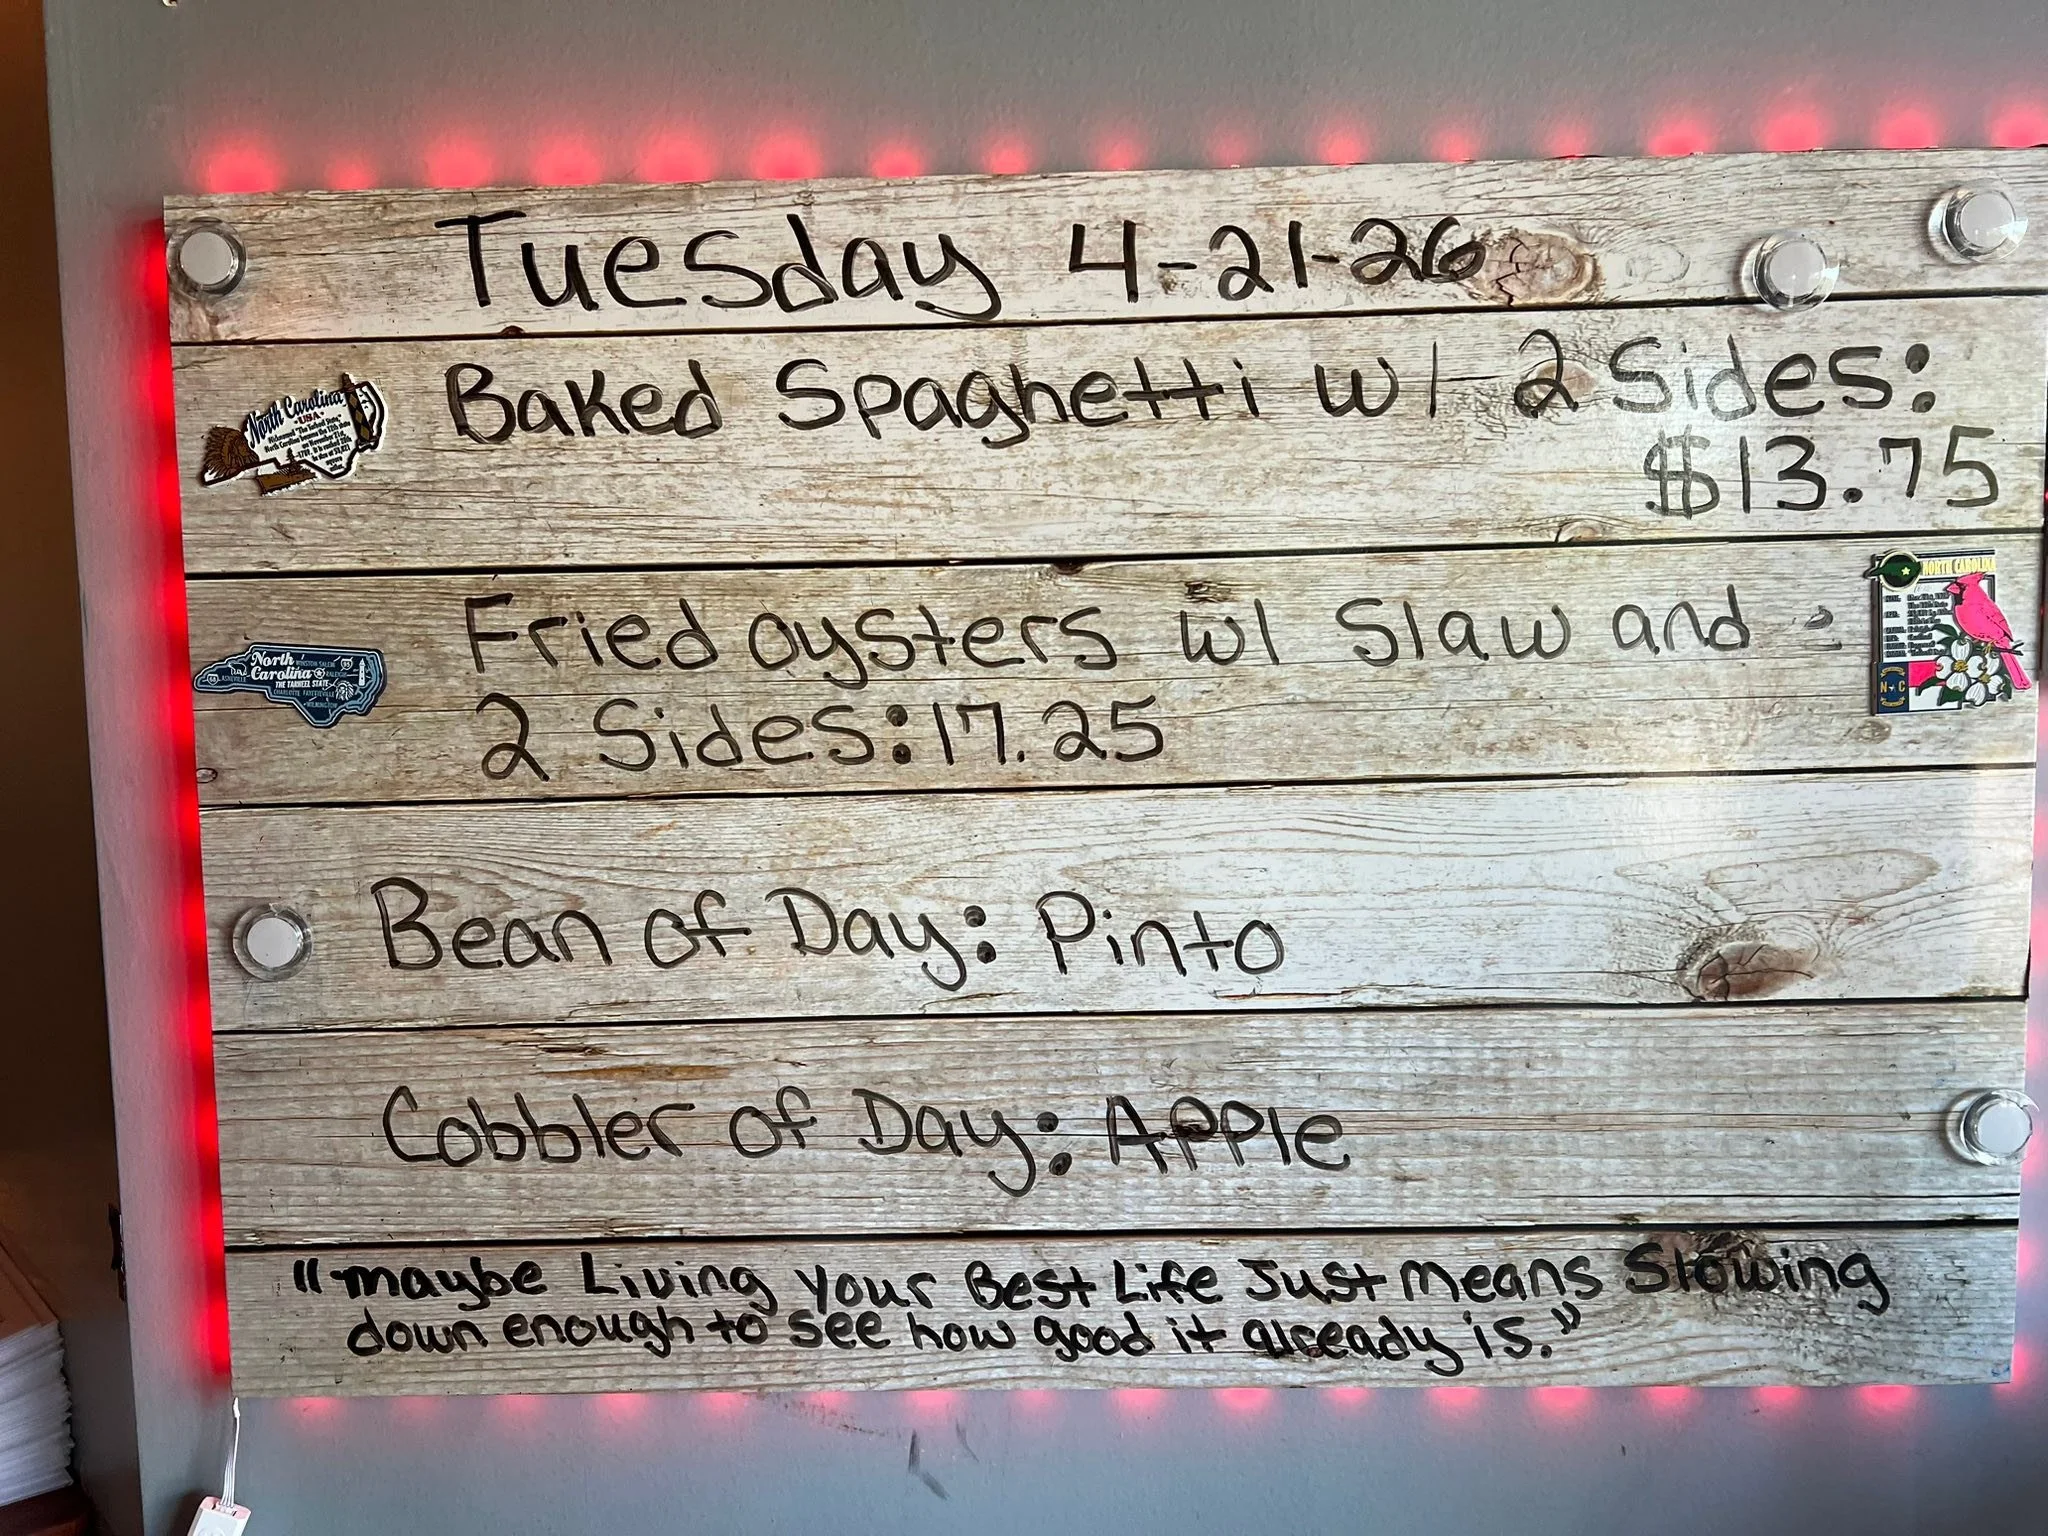 Tuesday 4-21-26
Baked Spaghetti w/ 2 Sides:
$13.75
Fried oysters w/ Slaw and
2 Sides: 17.25
Bean of Day: Pinto
Cobbler of Day: Apple
"maybe Living your Best Life Just means Slowing
down enough to see how good it already is."
North Carolina
USA
North
Carolina
THE TARHEEL STATE
NORTH CAROLINA
N C